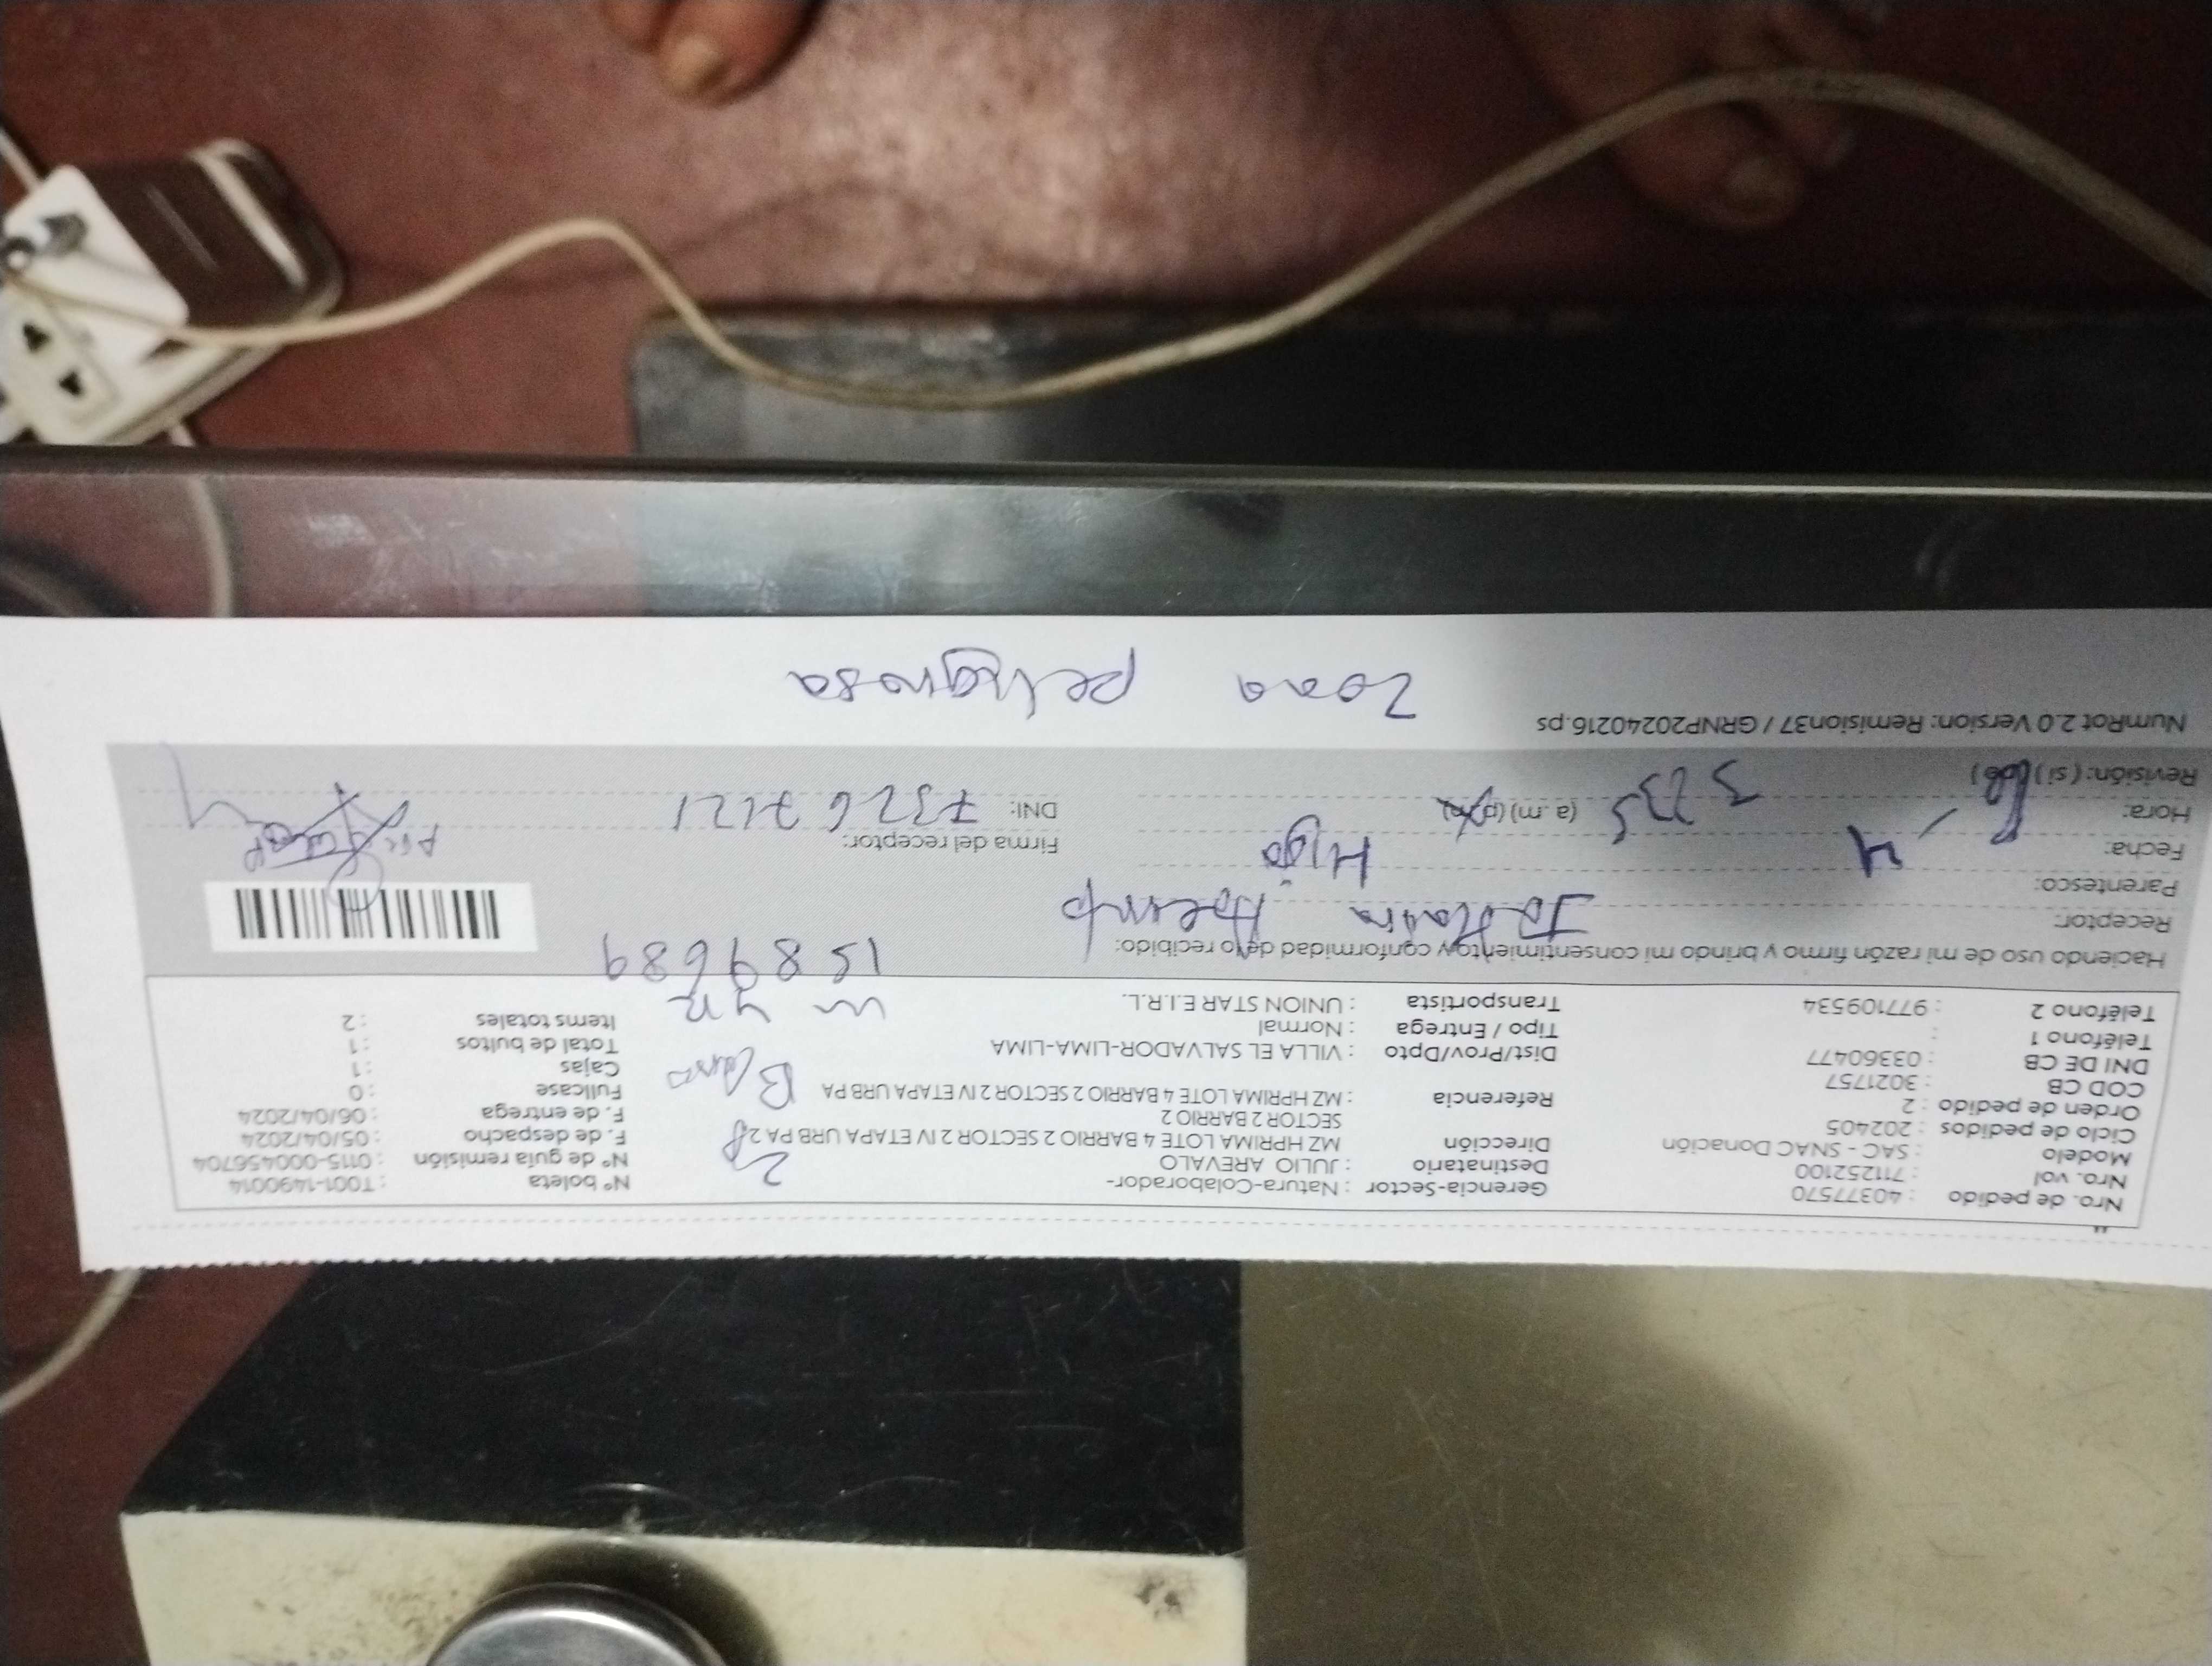 Nro. de pedido : 40377570
Nro. vol : 711252100
Modelo : SAC - SNAC Donación
Ciclo de pedidos : 202405
Orden de pedido : 2
COD CB : 3021757
DNI DE CB : 03360477
Teléfono 1 :
Teléfono 2 : 977109534
Gerencia-Sector : Natura-Colaborador-
Destinatario : JULIO AREVALO
Dirección MZ HPRIMA LOTE 4 BARRIO 2 SECTOR 2 IV ETAPA URB PA 2
SECTOR 2 BARRIO 2
Referencia : MZ HPRIMA LOTE 4 BARRIO 2 SECTOR 2 IV ETAPA URB PA
Dist/Prov/Dpto : VILLA EL SALVADOR-LIMA-LIMA
Tipo / Entrega : Normal
Transportista : UNION STAR E.I.R.L.
N° boleta : T001-1490014
N° de guía remisión : 0115-000456704
F. de despacho : 05/04/2024
F. de entrega : 06/04/2024
Fullcase : 0
Cajas : 1
Total de bultos : 1
Items totales : 2
2P
1589689
Haciendo uso de mi razón firmo y brindo mi consentimiento y conformidad de lo recibido:
Receptor:
Parentesco: Hijo
Fecha:
Hora: (a .m) (p.m)
Revisión: ( si )
Firma del receptor:
DNI: 73267121
NumRot 2.0 Version: Remision37 / GRNP20240216.ps
Zona peligrosa